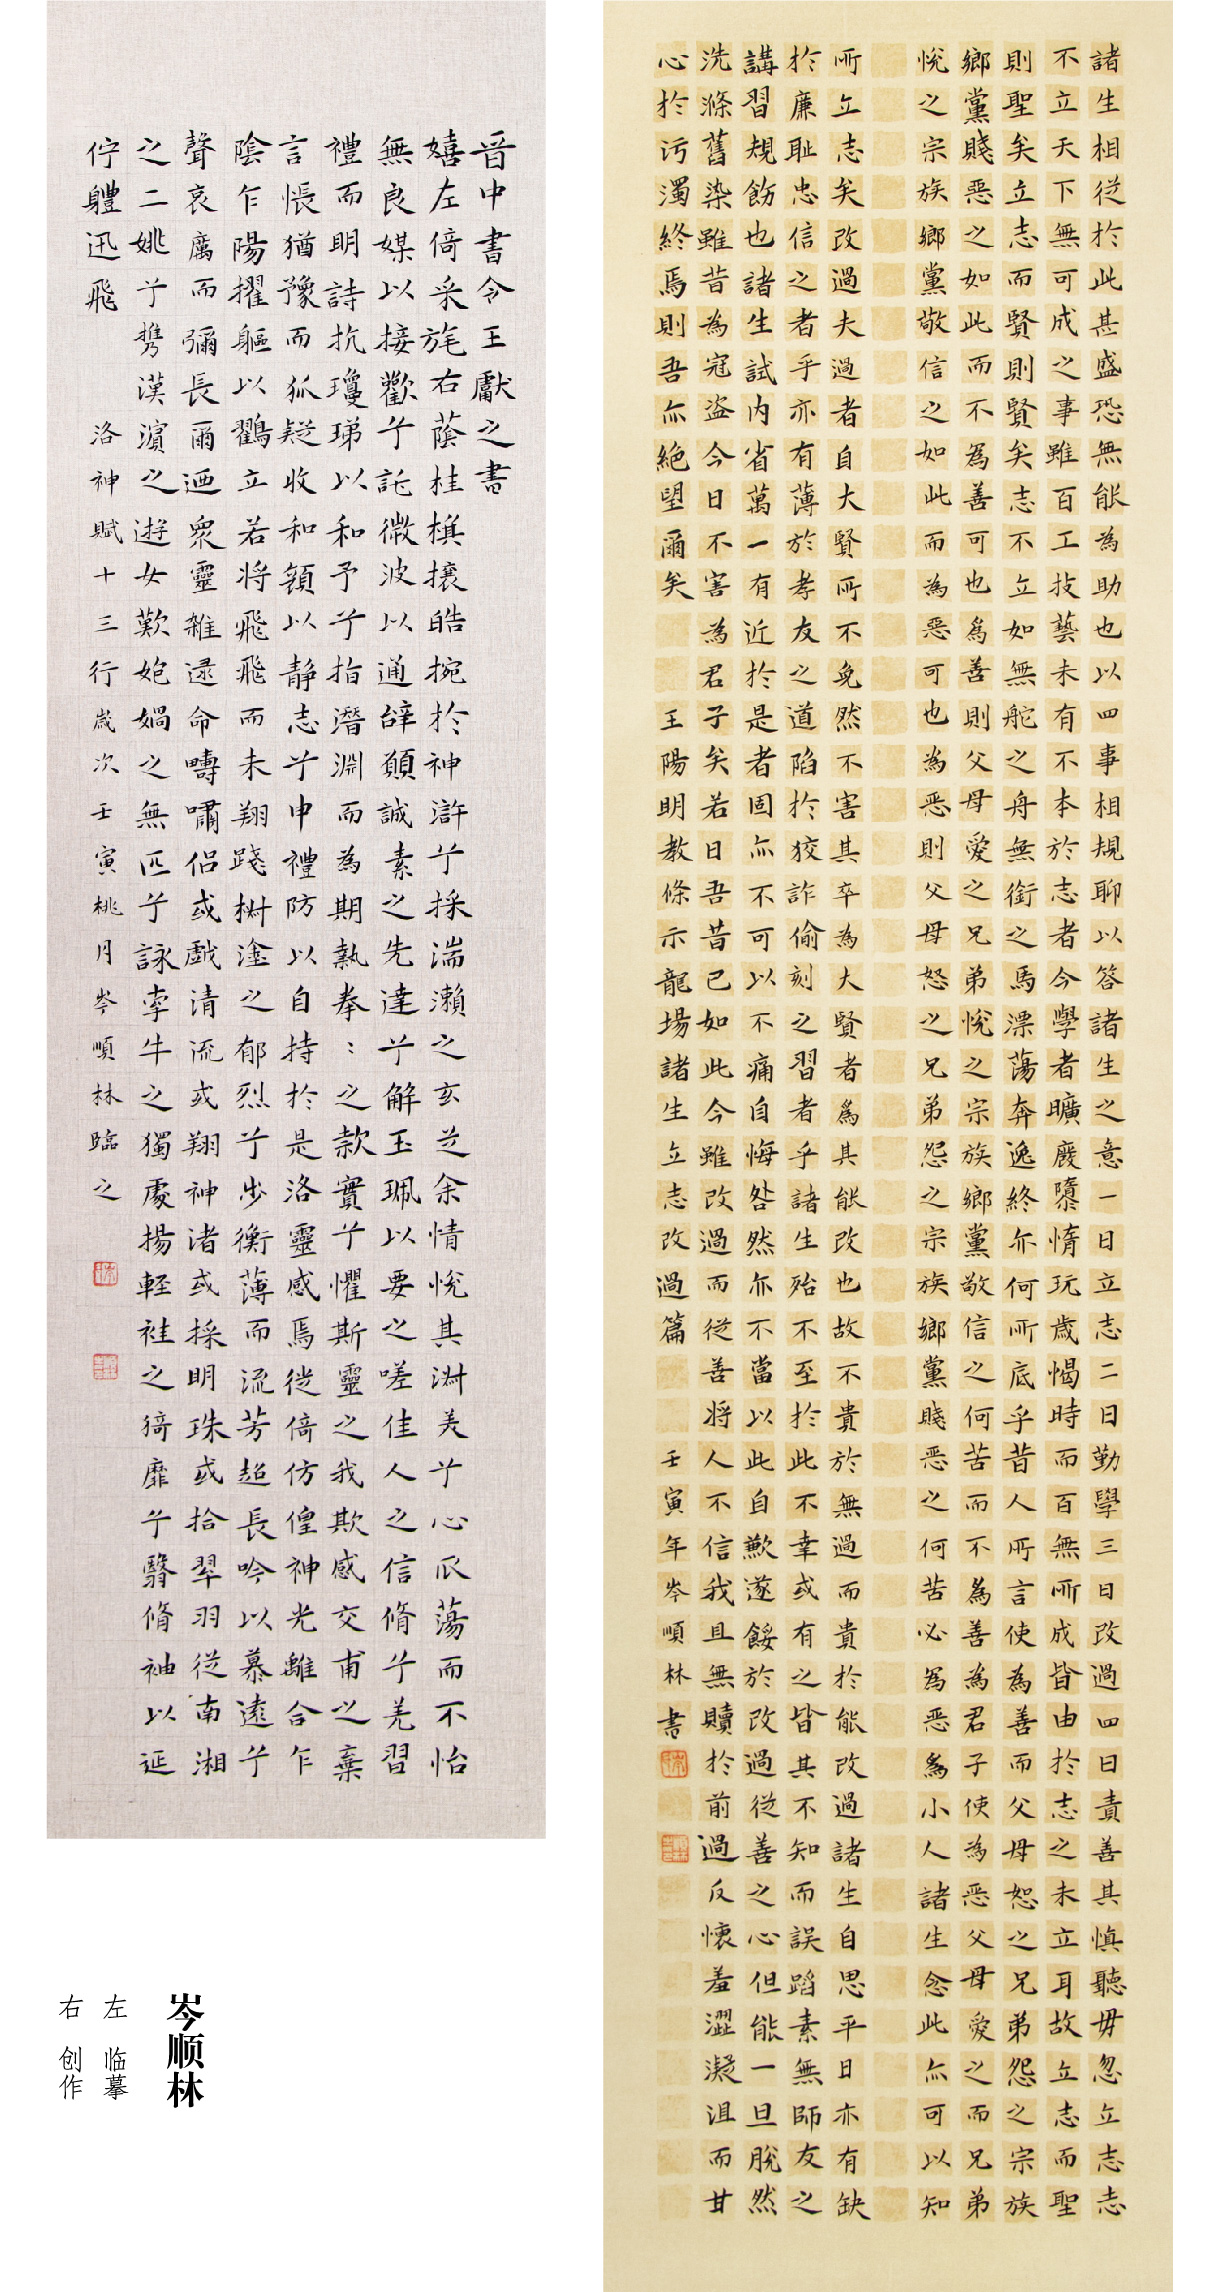 諸生相從於此甚盛恐無能為助也以四事相規聊以答諸生之意一曰立志二曰勤學三曰改過四曰責善其慎聽毋忽立志志
不立天下無可成之事雖百工技藝未有不本於志者今學者曠廢隳惰玩歲愒時而百無所成皆由於志之未立耳故立志而聖
則聖矣立志而賢則賢矣志不立如無舵之舟無銜之馬漂蕩奔逸終亦何所底乎昔人所言使為善而父母恕之兄弟怨之宗族
鄉黨賤惡之如此而不為善可也為善則父母愛之兄弟悅之宗族鄉黨敬信之何苦而不為善為君子使為惡父母愛之而兄弟
悅之宗族鄉黨敬信之如此而為惡可也為惡則父母怒之兄弟怨之宗族鄉黨賤惡之何苦必為惡為小人諸生念此亦可以知
所立志矣改過夫過者自大賢所不免然不害其卒為大賢者為其能改也故不貴於無過而貴於能改過諸生自思平日亦有缺
於廉恥忠信之者乎亦有薄於孝友之道陷於狡詐偷刻之習者乎諸生殆不至於此不幸或有之皆其不知而誤蹈素無師友之
講習規飭也諸生試内省萬一有近於是者固亦不可以不痛自悔咎然亦不當以此自歉遂餒於改過從善之心但能一旦脫然
洗滌舊染雖昔為寇盜今日不害為君子矣若日吾昔已如此今雖改過而從善將人不信我且無贖於前過反懷羞澀凝沮而甘
心於污濁終焉則吾亦絕望爾矣 王陽明教條示龍場諸生立志改過篇 壬寅年岑順林書
晉中書令王獻之書
嬉左倚采旄右蔭桂旗攘皓捥於神滸兮採湍瀨之玄芝余情悅其淑美兮心振蕩而不怡
無良媒以接歡兮託微波以通辭願誠素之先達兮解玉珮以要之嗟佳人之信脩兮羌習
禮而明詩抗瓊珶以和予兮指潛淵而為期執拳〻之款實兮懼斯靈之我欺感交甫之棄
言悵猶豫而狐疑收和顏以靜志兮申禮防以自持於是洛靈感焉徙倚仿偟神光離合乍
陰乍陽擢軀以鶴立若將飛飛而未翔踐椒塗之郁烈兮步蘅薄而流芳超長吟以慕遠兮
聲哀厲而彌長爾迺衆靈雜遝命疇嘯侶或戲清流或翔神渚或採明珠或拾翠羽從南湘
之二姚兮攜漢濱之遊女歎匏媧之無匹兮詠牽牛之獨處揚輕袿之猗靡兮翳脩袖以延
佇軆迅飛 洛神賦十三行歲次壬寅桃月岑順林臨之
岑顺林
左 临摹
右 创作